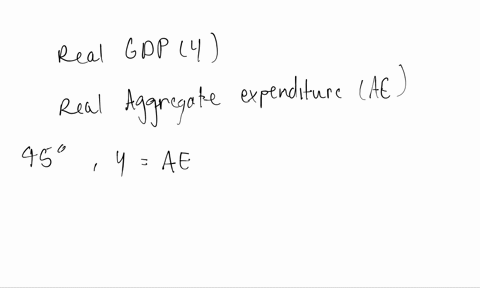 Real GDP (Y)
Real Aggregate expenditure (AE)
45° , Y = AE